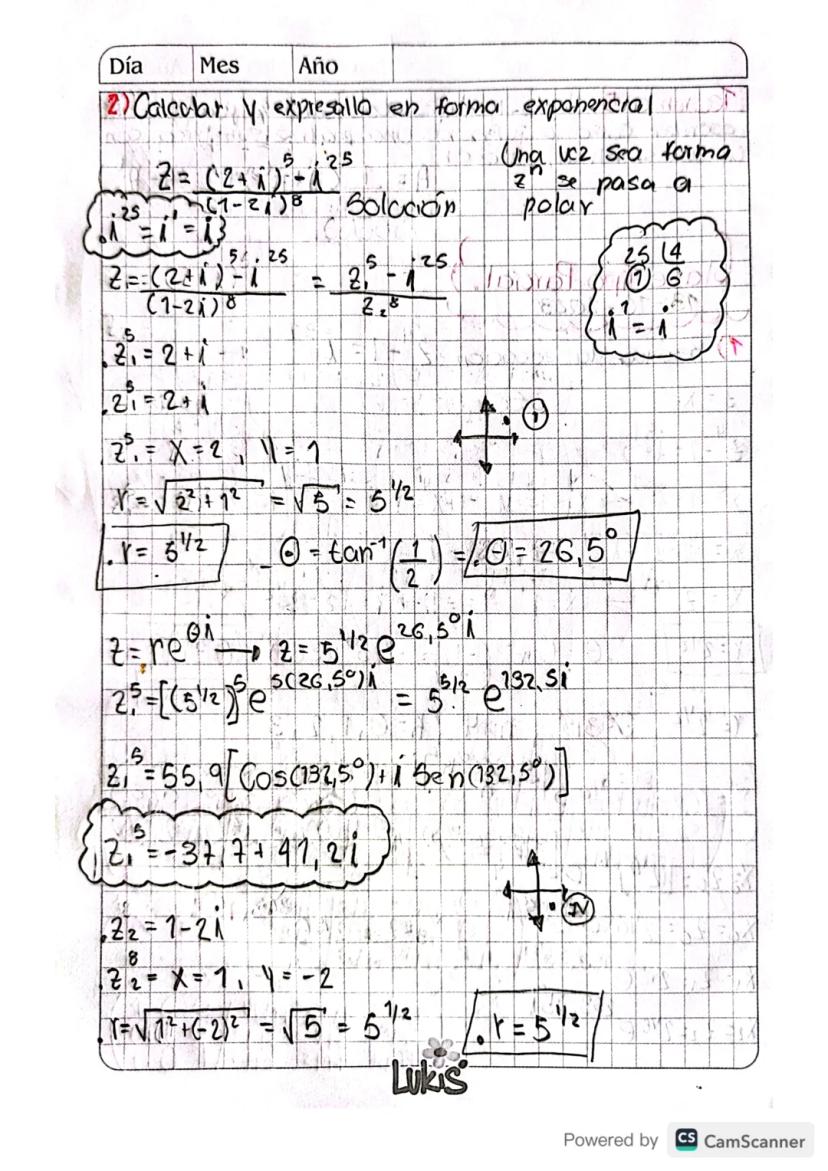 Día Mes Año
2) Calcular y expresallo en forma exponencial
Z = (2+i)^5 - i^25 / (1-2i)^8 Solución
Una vez sea forma
z^n se pasa a
polar
i^25 = i^1 = i
25 | 4
1 6
i^1 = i
Z = (2+i)^5 - i^25 / (1-2i)^8 = z₁^5 - i^25 / z₂^8
.z₁^5 = 2+i
.z₁^5 = 2+i
I
z₁^5 = x = 2, y = 1
r = √(2²+1²) = √5 = 5^1/2
.r = 5^1/2 - θ = tan^-1 (1/2) = .θ = 26,5°
z = re^θi → z = 5^1/2 e^26,5°i
z₁^5 = [(5^1/2)^5 e^5(26,5°)i = 5^5/2 e^132,5i
z₁^5 = 55,9[Cos(132,5°) + i Sen(132,5°)]
z₁^5 = -37,7 + 41,2i
IV
.z₂ = 1-2i
.z₂^8 = x = 1, y = -2
.r = √(1²+(-2)²) = √5 = 5^1/2 .r = 5^1/2
Lukis
Powered by CS CamScanner